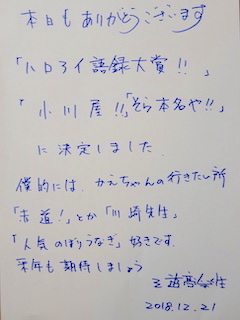 本日もありがとうございます
「ハロアイ語録大賞!!」
「小川屋!!そら本名や!!」
に決定しました
僕的には、かえちゃんの行きたい所
「赤道!」とか「川崎先生」
「人気のぼりうなぎ」好きです。
来年も期待しましょう
三遊亭
2018.12.21